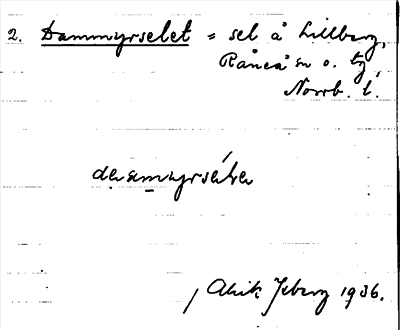 2. Dammyrselet = sel å Lillberg,
Råneå sn o. tg,
Norrb. l.
Alrik Yberg 1936.